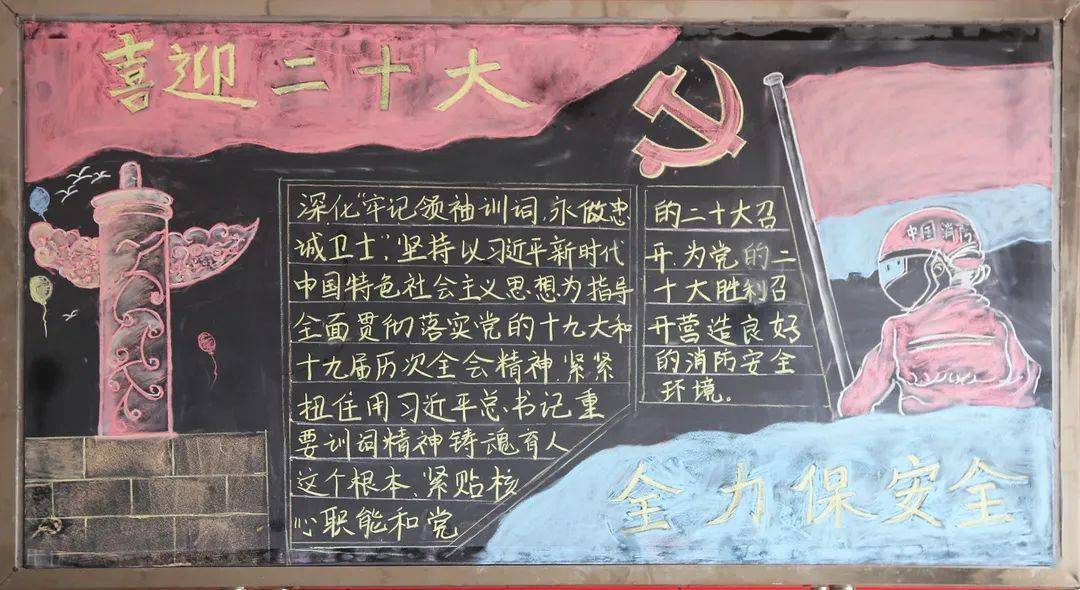 喜迎二十大
深化“牢记领袖训词、永做忠
诚卫士”，坚持以习近平新时代
中国特色社会主义思想为指导
全面贯彻落实党的十九大和
十九届历次全会精神，紧紧
扭住用习近平总书记重
要训词精神铸魂育人
这个根本、紧贴核
心职能和党
的二十大召
开，为党的二
十大胜利召
开营造良好
的消防安全
环境。
中国消防
全力保安全